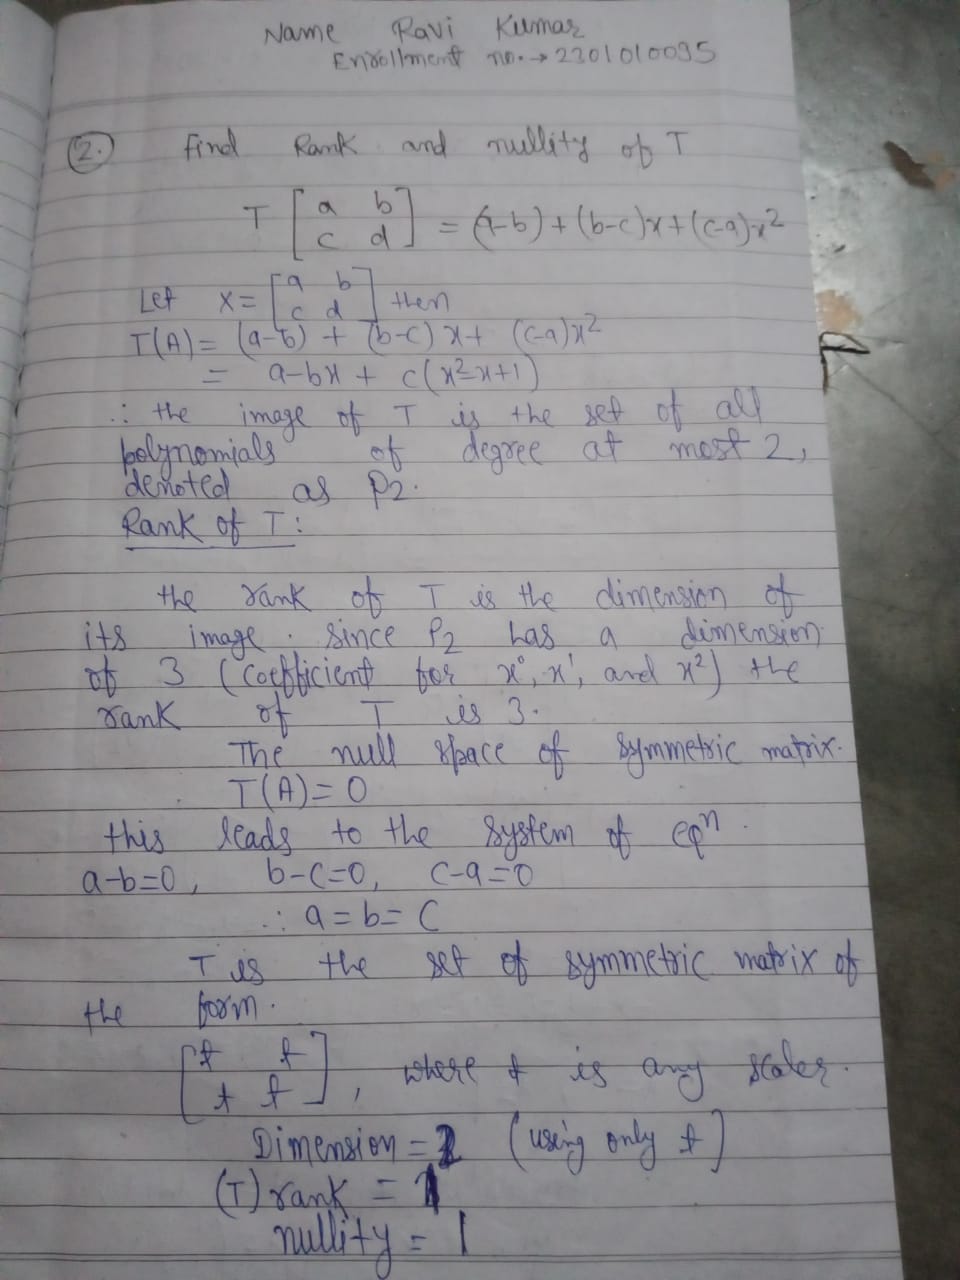 Name Ravi Kumar
Enrollment no. → 2301010095
2. Find Rank and nullity of T
T [a b c d] = (a-b) + (b-c)x + (c-a)x²
Let x = [a b c d] then
T(A) = (a-b) + (b-c) x + (c-a)x²
= a-bx + c(x²-x+1)
∴ the image of T is the set of all
polynomials of degree at most 2,
denoted as P2.
Rank of T:
the rank of T is the dimension of
its image. Since P2 has a dimension
of 3 (coefficient for x⁰, x¹, and x²) the
rank of T is 3.
The null space of symmetric matrix.
T(A) = 0
this leads to the system of eqⁿ.
a-b=0, b-c=0, c-a=0
∴ a = b = c
T is the set of symmetric matrix of
the form.
[t t t t], where t is any scaler.
Dimension = (using only t)
(T) rank = 1
nullity = 1